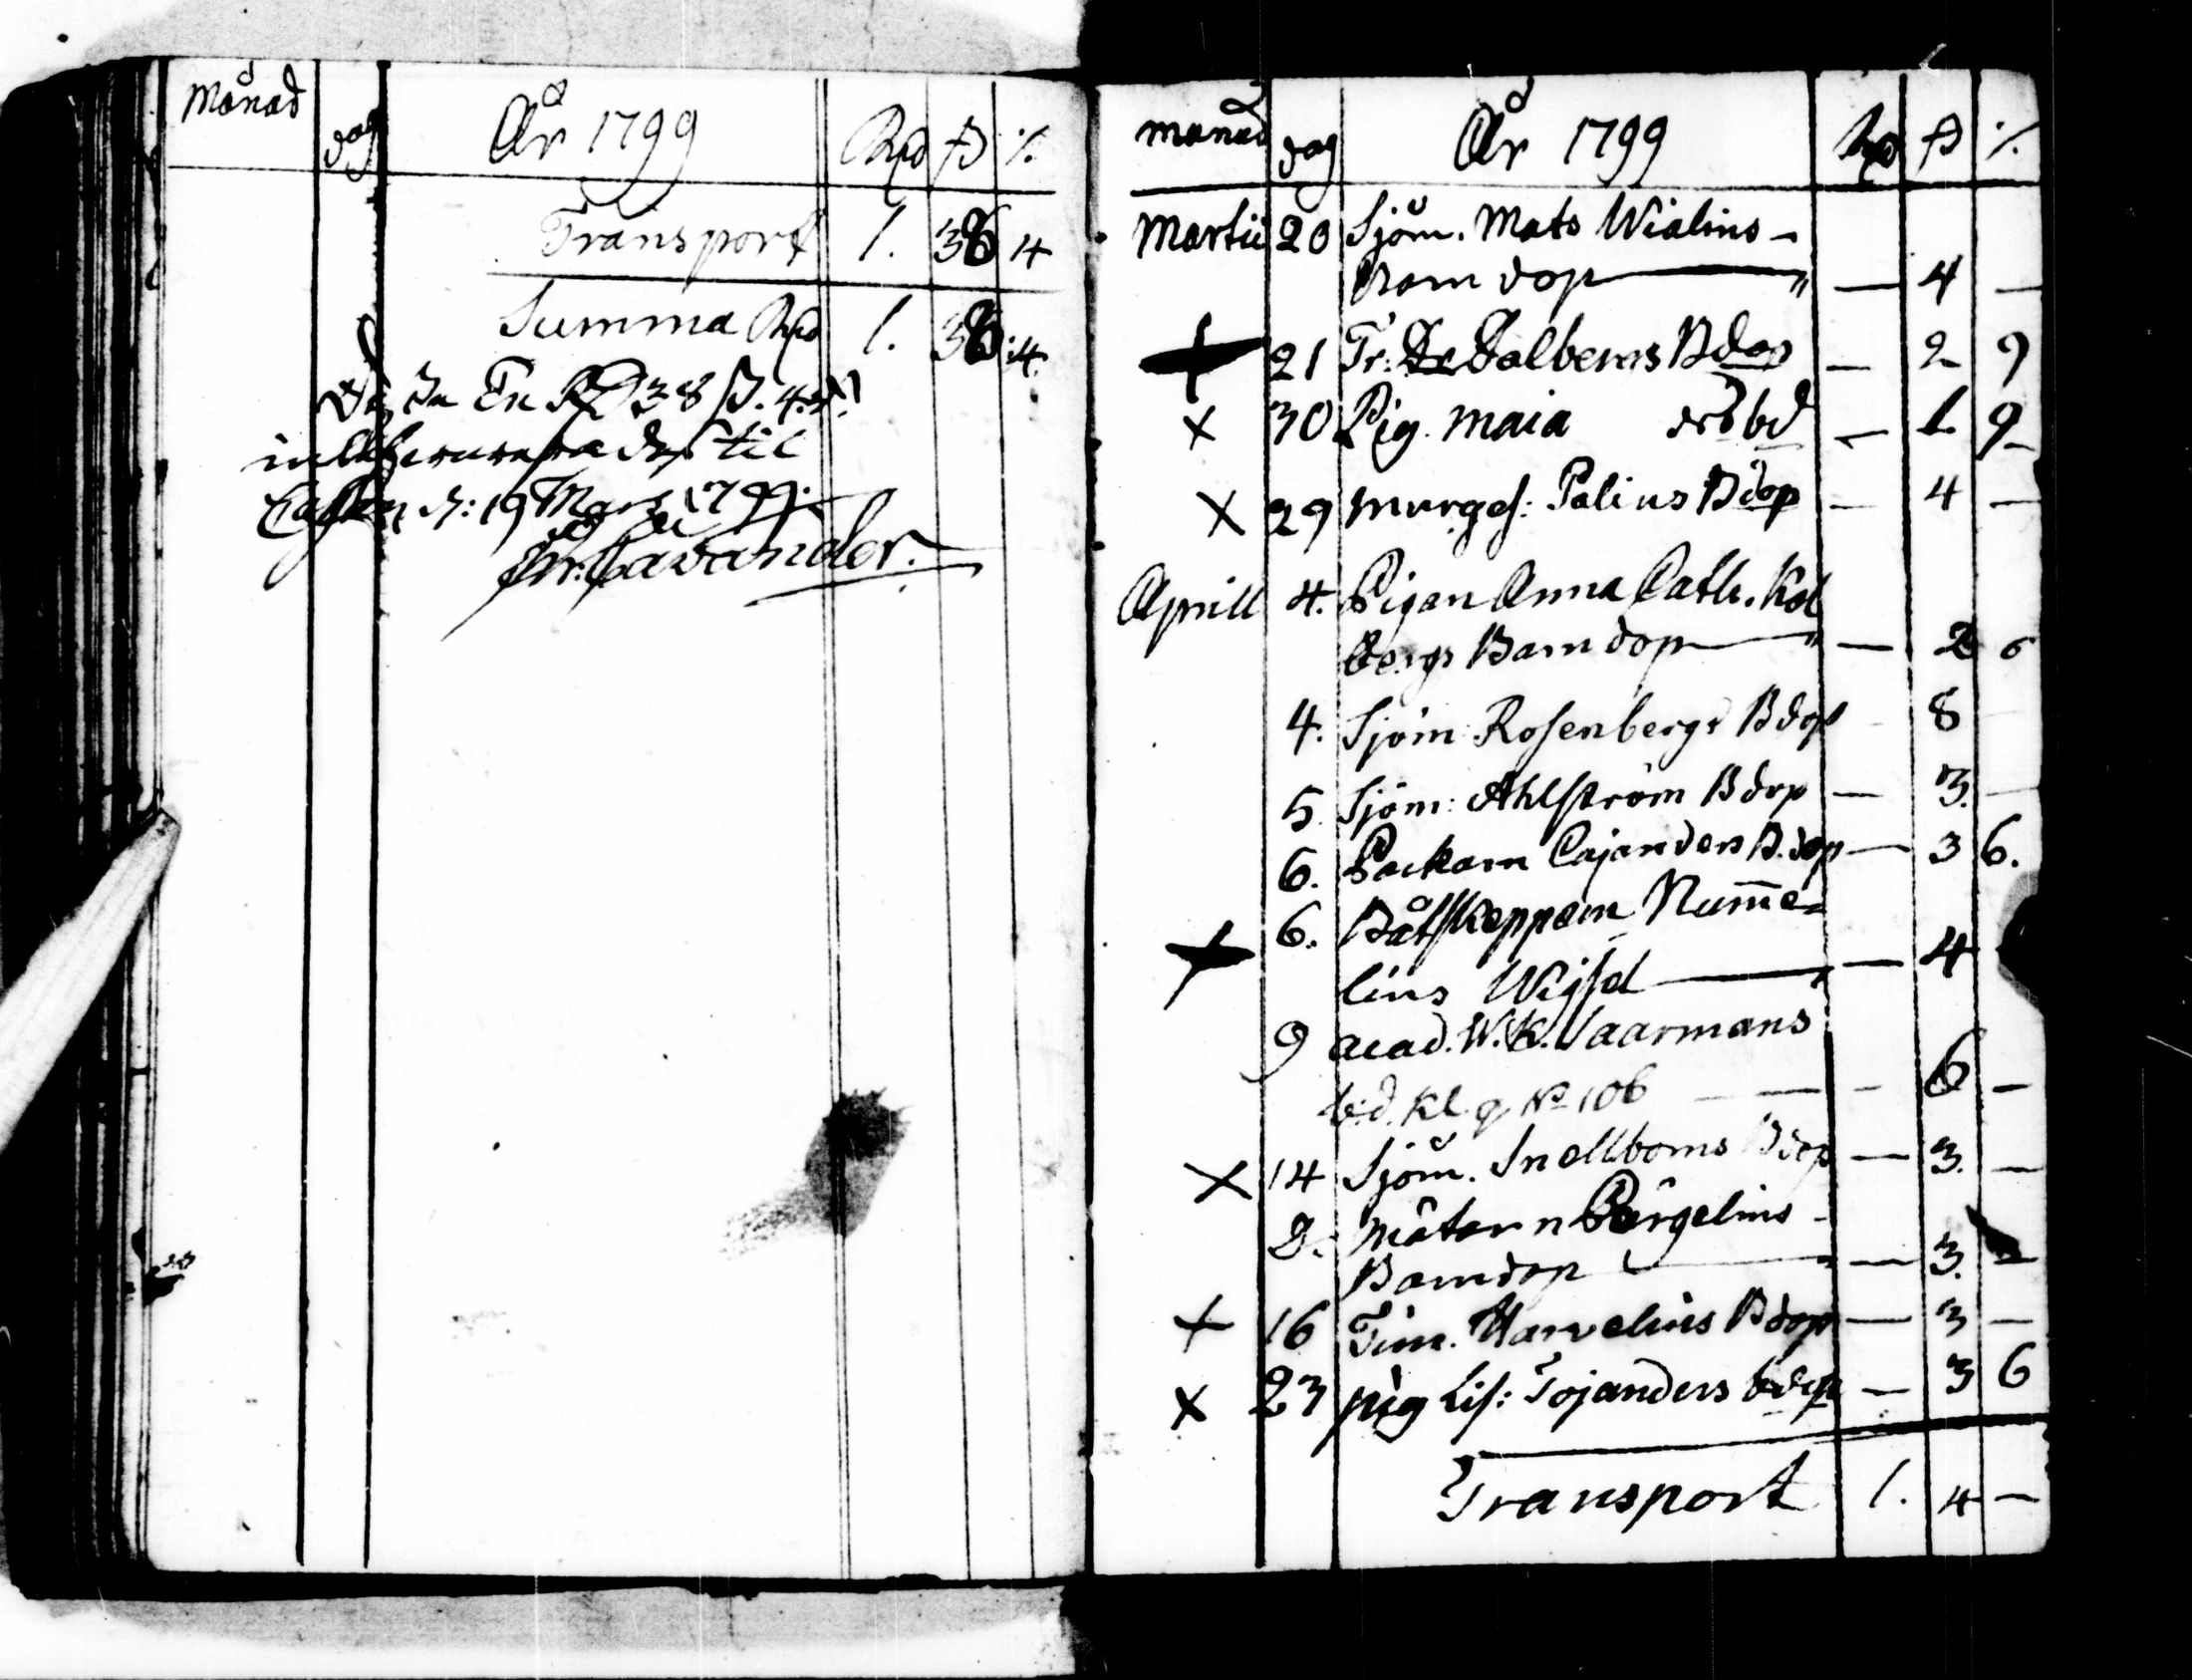 Månad dag År 1799 Rd ß ⁒
Transport 1. 38 4
Summa Rd 1. 38 :4.
En Rd 38 ß. 4
til
Cassan d: 19 Mars 1799.
Cavander.
månad dag År 1799 ß ⁒
Martii 20 Sjöm. Mats Wialins -
Barn dop — 4 —
+ 21 Tr: Dalbergs Bdop — 2 9
x 30 Pig. Maia — 1. 9
x 29 murges: Palius Bdop — 4 —
Aprill 4. Pigan Anna Cath. Kol
bergs Barndop — 2 6
4. Sjöm: Rosenbergs Bdop - 8 -
5. Sjöm: Ahlström Bdop — 3. —
6. Packarn Cajanders B.dop — 3 6.
6. Båtskeppern Num̅e-
+ lins Wigsel — 4
9 acad. W. K. Vaarmans
bd. Kl. g No 106 — 6 —
x 14 Sjöm. Snellboms Bdop — 3. —
D. Mätarn Bergelins -
Barndop — 3. —
+ 16 Tim. Harvelins Bdop — 3 —
x 23 pig Lis: Tojanders bdop — 3 6
Transport 1. 4 —